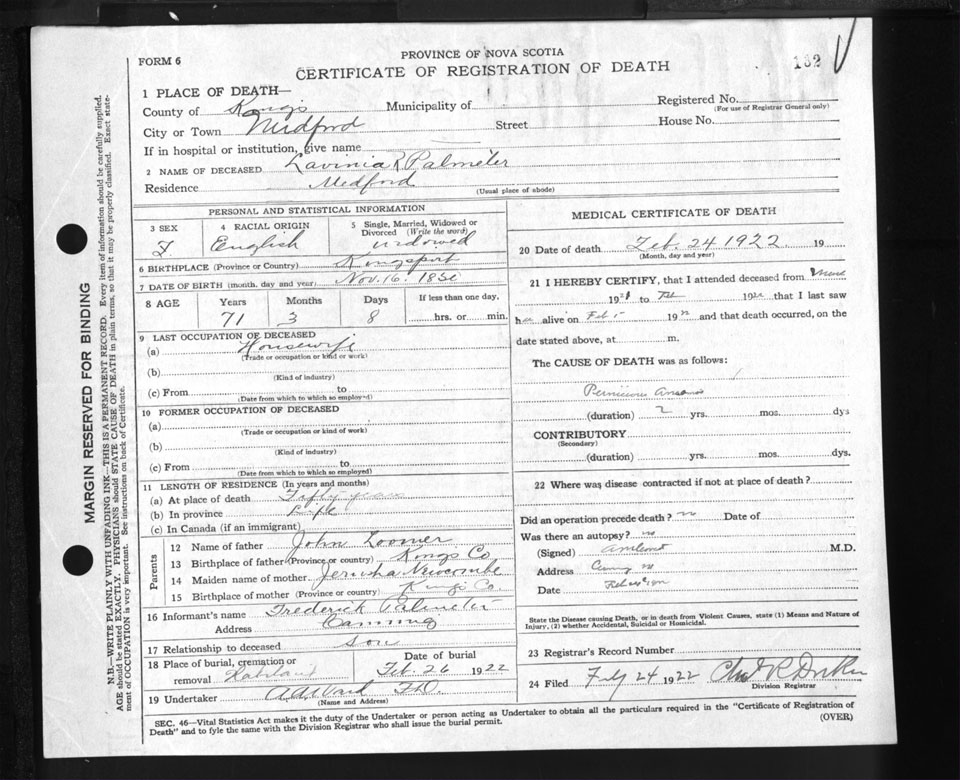 PROVINCE OF NOVA SCOTIA
FORM 6
CERTIFICATE OF REGISTRATION OF DEATH
132
1 PLACE OF DEATH—
County of Kings Municipality of Registered No.
(For use of Registrar General only)
City or Town Medford Street House No.
If in hospital or institution, give name
2 NAME OF DECEASED Lavinia R Palmeter
Residence Medford
(Usual place of abode)
PERSONAL AND STATISTICAL INFORMATION
3 SEX 4 RACIAL ORIGIN 5 Single, Married, Widowed or Divorced (Write the word)
F. English widowed
6 BIRTHPLACE (Province or Country) Kingsport
7 DATE OF BIRTH (month, day and year) Nov. 16. 1850
8 AGE Years Months Days If less than one day,
71 3 8 hrs. or min.
9 LAST OCCUPATION OF DECEASED
(a) Housewife
(Trade or occupation or kind or work)
(b)
(Kind of industry)
(c) From to
(Date from which to which so employed)
10 FORMER OCCUPATION OF DECEASED
(a)
(Trade or occupation or kind of work)
(b)
(Kind of industry)
(c) From to
(Date from which to which so employed)
11 LENGTH OF RESIDENCE (In years and months)
(a) At place of death Fifty years
(b) In province Life
(c) In Canada (if an immigrant)
Parents
12 Name of father John Loomer
13 Birthplace of father (Province or country) Kings Co
14 Maiden name of mother Jerusha Newcombe
15 Birthplace of mother (Province or country) Kings Co.
16 Informant's name Frederick Palmeter
Address Canning
17 Relationship to deceased son
18 Place of burial, cremation or removal Date of burial
Feb. 26 1922
19 Undertaker A D Ward
(Name and Address)
MEDICAL CERTIFICATE OF DEATH
20 Date of death Feb. 24 1922 19
(Month, day and year)
21 I HEREBY CERTIFY, that I attended deceased from
192 to Feb 192 that I last saw
her alive on Feb 192 and that death occurred, on
date stated above, at m.
The CAUSE OF DEATH was as follows:
Pernicious
(duration) 2 yrs. mos. dys
CONTRIBUTORY
(Secondary)
(duration) yrs. mos. dys.
22 Where was disease contracted if not at place of death?
Did an operation precede death? no Date of
Was there an autopsy? no
(Signed) M.D.
Address
Date
State the Disease causing Death, or in death from Violent Causes, state (1) Means and Nature of
Injury, (2) whether Accidental, Suicidal or Homicidal.
23 Registrar's Record Number
24 Filed Feb 24 1922
Division Registrar
SEC. 46—Vital Statistics Act makes it the duty of the Undertaker or person acting as Undertaker to obtain all the particulars required in the "Certificate of Registration of
Death" and to fyle the same with the Division Registrar who shall issue the burial permit.
(OVER)
MARGIN RESERVED FOR BINDING
N.B.—WRITE PLAINLY WITH UNFADING INK—THIS IS A PERMANENT RECORD. Every item of information should be carefully supplied.
AGE should be stated EXACTLY. PHYSICIANS should STATE CAUSE OF DEATH in plain terms, so that it may be properly classified. Exact state-
ment of OCCUPATION is very important. See instructions on back of Certificate.